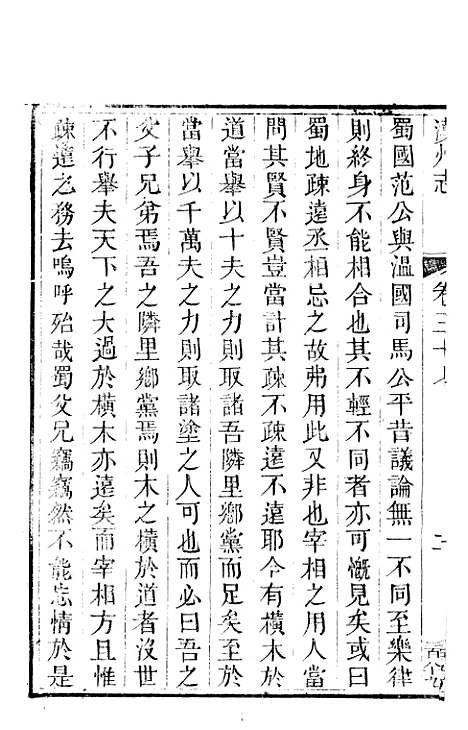 漢州志
卷三十八
二
蜀國范公與溫國司馬公平昔議論無一不同至樂律
則終身不能相合也其不輕不同者亦可慨見矣或曰
蜀地疎遠丞相忌之故弗用此又非也宰相之用人當
問其賢不賢豈當計其疎不疎遠不遠耶今有橫木於
道當舉以十夫之力則取諸吾隣里鄉黨而足矣至於
當舉以千萬夫之力則取諸塗之人可也而必曰吾之
父子兄弟焉吾之隣里鄉黨焉則木之橫於道者沒世
不行舉夫天下之大過於橫木亦遠矣而宰相方且惟
疎遠之務去嗚呼殆哉蜀父兄竊竊然不能忘情於是